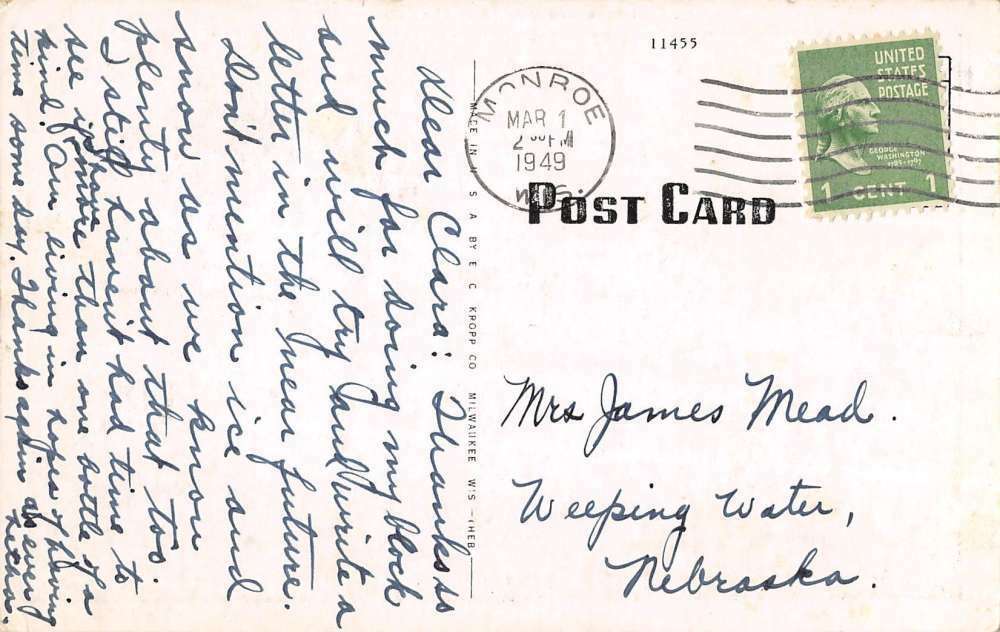 Dear Clara: Thanks so
much for doing my block
and will try and write a
letter in the near future.
Don't mention ice and
snow as we know
plenty about that too.
I still haven't had time to
see if I have more than one bottle of a
kind. Am living in hopes of having
time some day. Thanks again as ever
MADE IN U S A BY E C KROPP CO MILWAUKEE WIS
11455
MONROE
MAR 1
2 PM
1949
WIS.
UNITED
STATES
POSTAGE
GEORGE
WASHINGTON
1789-1797
1 CENT 1
POST CARD
Mrs James Mead.
Weeping Water,
Nebraska.